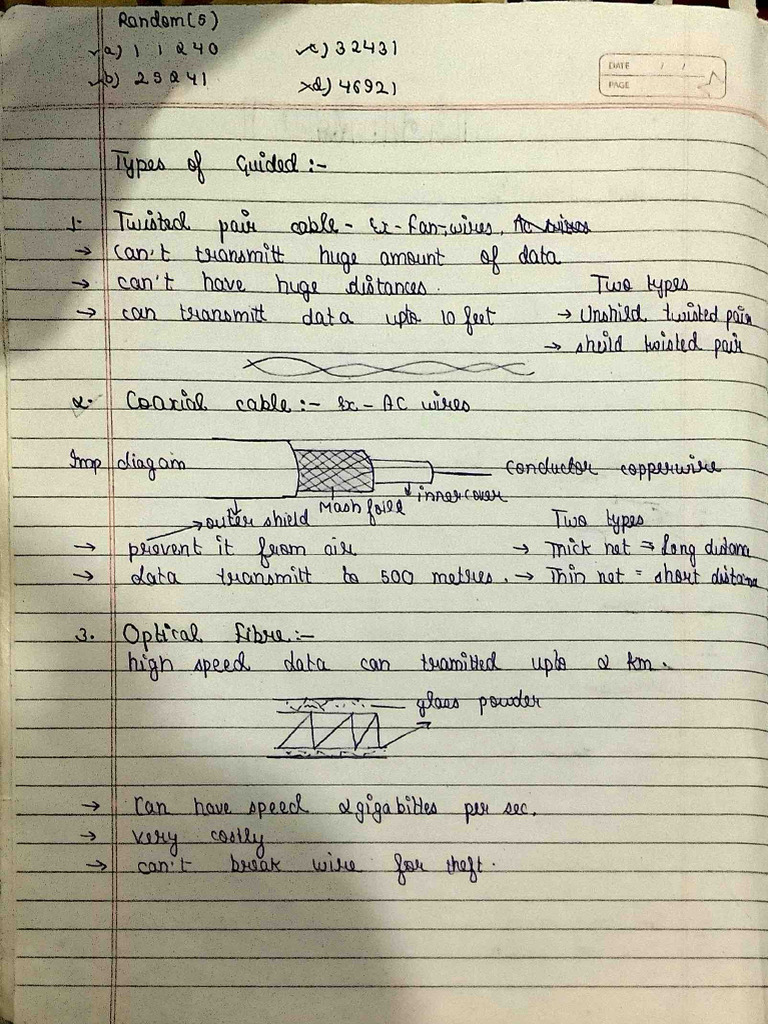 Random(5)
a) 1 1 2 4 0
c) 3 2 4 3 1
b) 2 3 2 4 1
d) 4 6 9 2 1
DATE / /
PAGE
Types of Guided :-
1. Twisted pair cable - Ex - Fan-wires, AC wires
→ can't transmitt huge amount of data
→ can't have huge distances.
Two types
→ can transmitt data upto 10 feet
→ Unshild twisted pair
→ sheild twisted pair
2. Coaxial cable :- Ex - AC wires
Imp diagam
conductor copperwire
innercover
Mash foild
outer shield
Two types
→ prevent it from air
→ Thick net ⇒ Long distan
→ data transmitt to 500 metres.
→ Thin net = short distan
3. Optical Fibre :-
high speed data can tramitted upto 2 km.
glass powder
→ Can have speed 2gigabittes per sec.
→ very costly
→ can't break wire for theft.